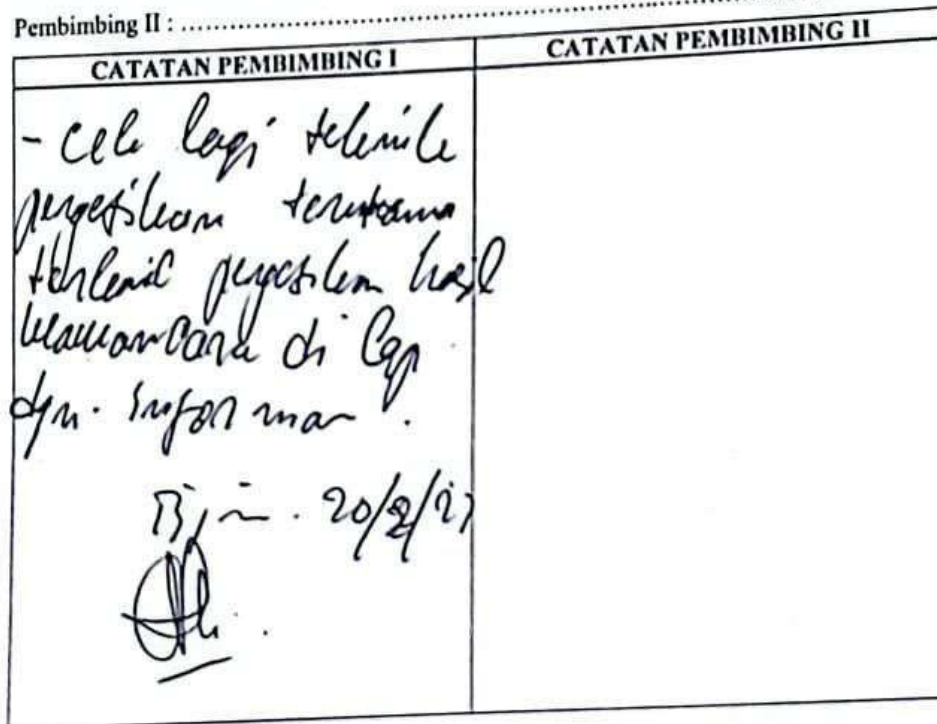 Pembimbing II : ..........................................................................
CATATAN PEMBIMBING I
CATATAN PEMBIMBING II
- Cek lagi teknik
pengetikan terutama
terkait pengetikan hasil
wawancara di Lap
dgn. Informan .
20/2/23